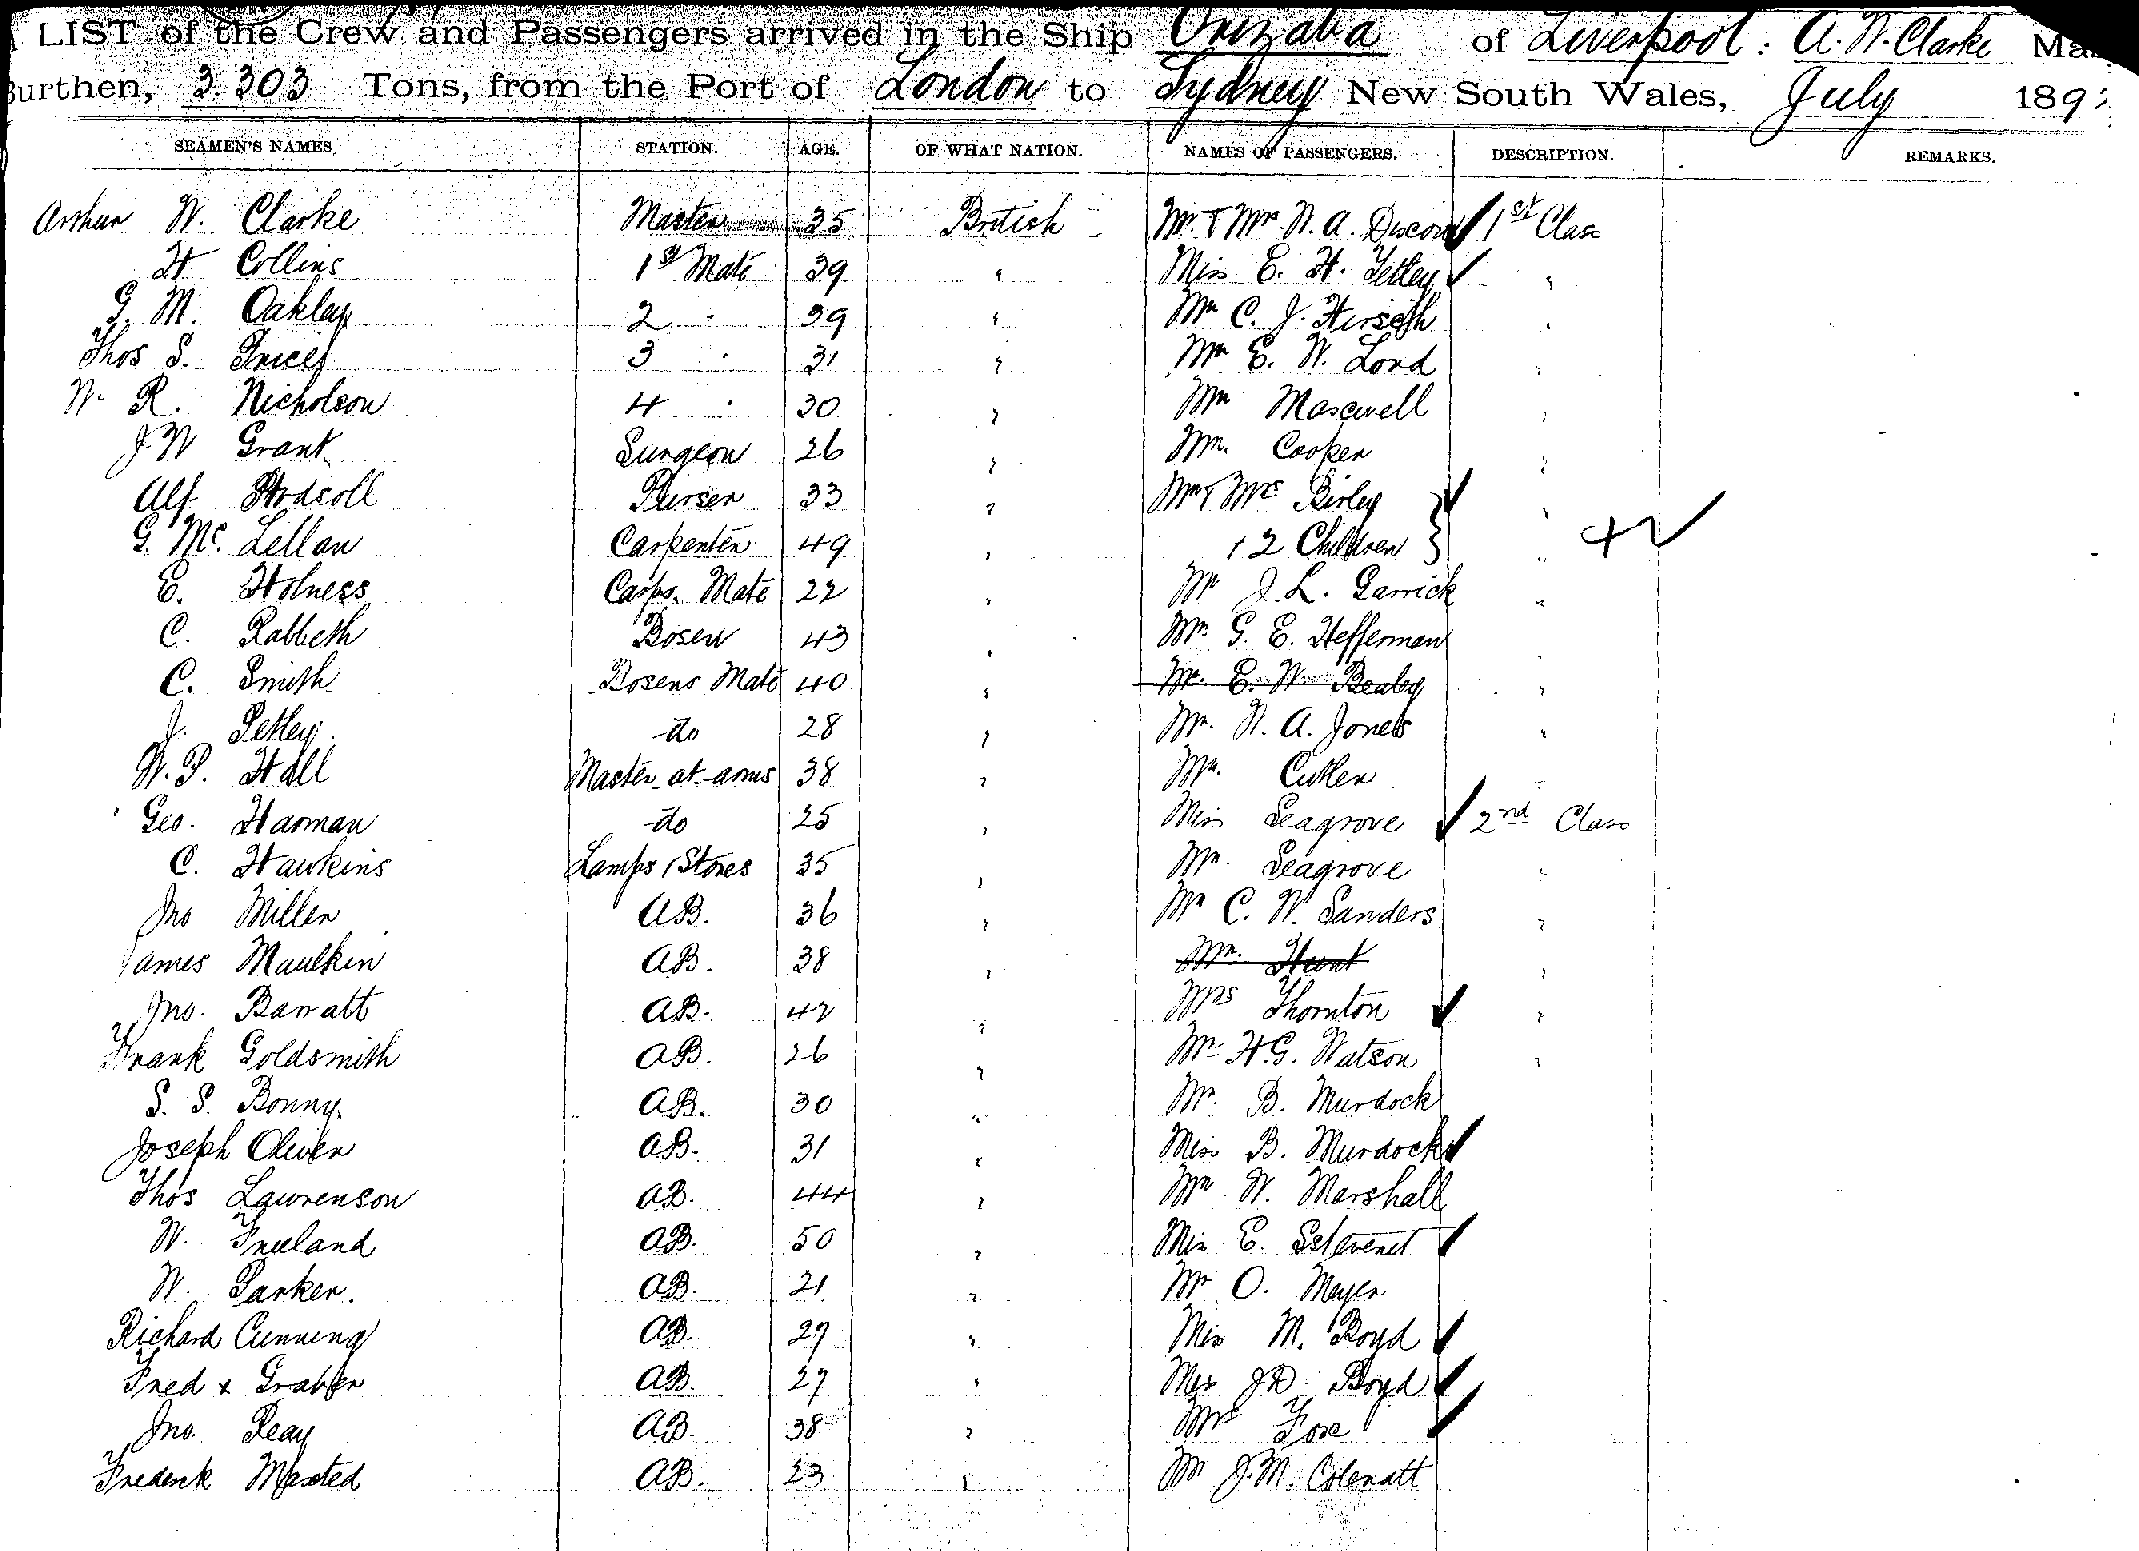 LIST of the Crew and Passengers arrived in the Ship Orizaba of Liverpool: A. W. Clarke
Burthen, 3.303 Tons, from the Port of London to Sydney New South Wales, July 189
SEAMEN'S NAMES. STATION. AGE. OF WHAT NATION. NAMES OF PASSENGERS. DESCRIPTION. REMARKS.
Arthur W. Clarke Master 35 British Mr & Mrs W. A. 1st Class
H Collins 1st Mate 39 " Miss E. H. Tetley "
G. M. Oakley 2 " 39 " Mr C. J. "
Thos S. 3 " 31 " Mr E. W. Lord "
W. R. Nicholson 4 " 30 " Mr Maxwell "
J W Grant Surgeon 26 " Mr. Cooper "
Alf Purser 33 " Mr & Mrs Birley "
G. Mc. Lellan Carpenter 49 " & 2 Children } " 4
E. Holness Carps. Mate 22 " Mr J. L. Garrick "
C. Rabbeth Bosen 43 " Mr G. E. Heffernan "
C. Smith Bosens Mate 40 " Mr. E. W. Bealey "
J. Petley. do 28 " Mr. W. A. Jones "
W. P. Hall Master at arms 38 " Mr. Cutler "
Geo. Harman do 25 " Miss Seagrove 2nd Class
C. Hawkins Lamps & Stores 35 " Mr Seagrove "
Jno Miller AB. 36 " Mr C. W. Sanders "
James Maulkin AB. 38 " Mr. Hunt "
Jno. Barratt AB. 42 " Mrs Thornton "
Frank Goldsmith AB. 26 " Mr H. G. Watson "
S. S. Bonny. AB. 30 " Mr. B. Murdock
Joseph Oliver AB. 31 " Miss B. Murdock
Thos Lawrenson AB. 44 " Mr W. Marshall
W. Freeland AB. 50 " Miss E.
W. Parker. AB. 21 " Mr O. Meyer
Richard Cunning AB. 27 " Miss M. Boyd
Fred x AB. 27 " J D Boyd
Jno. Reay AB. 38 " Fox
Frederick Maxted AB. 23 " Mr J. M.